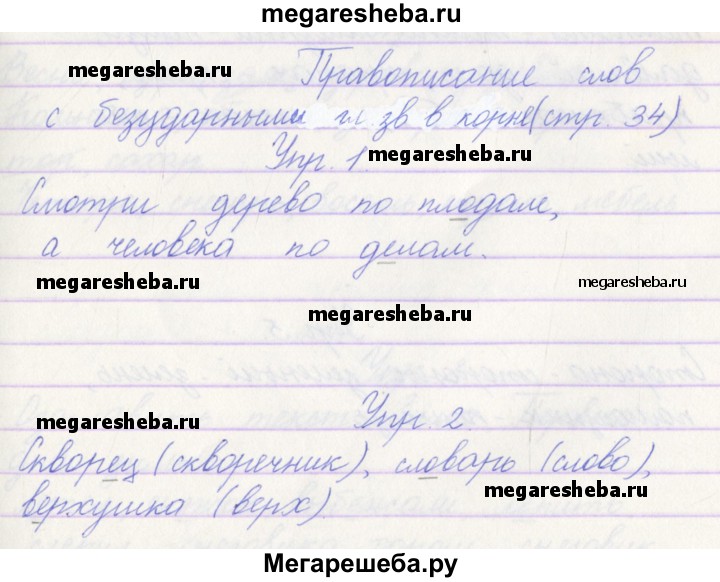 megaresheba.ru
Правописание слов
megaresheba.ru
с безударными гл. зв в корне (стр. 34)
Упр. 1.
megaresheba.ru
Смотри дерево по плодам,
а человека по делам.
megaresheba.ru
megaresheba.ru
megaresheba.ru
Упр. 2
megaresheba.ru
Скворец (скворечник), словарь (слово),
верхушка (верх).
megaresheba.ru
Мегарешеба.ру